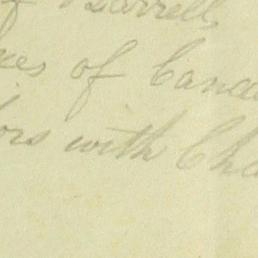 of Barrell
es of Canc
ors with Cha